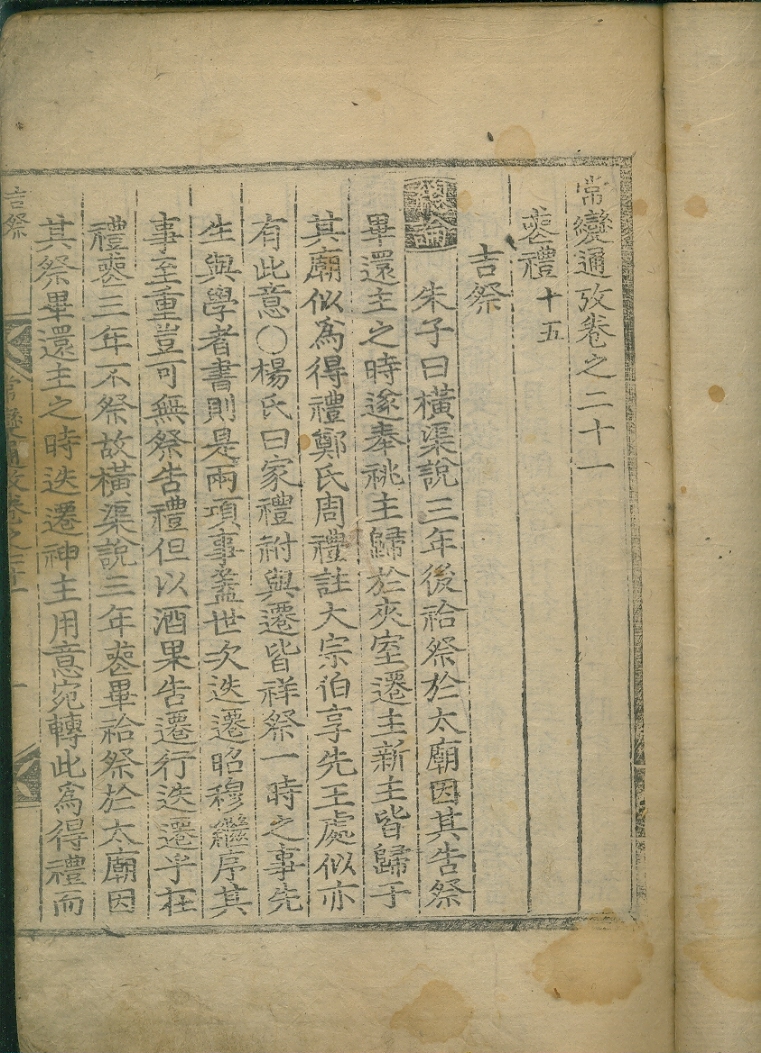 常變通攷卷之二十一
喪禮十五
吉祭
總論 朱子曰橫渠說三年後祫祭於太廟因其告祭
畢還主之時遂奉祧主歸於夾室遷主新主皆歸于
其廟似爲得禮鄭氏周禮註大宗伯享先王處似亦
有此意○楊氏曰家禮祔與遷皆祥祭一時之事先
生與學者書則是兩項事蓋世次迭遷昭穆繼序其
事至重豈可無祭告禮但以酒果告遷行迭遷乎在
禮喪三年不祭故橫渠說三年喪畢祫祭於太廟因
其祭畢還主之時迭遷神主用意宛轉此爲得禮而
吉祭
常變通攷卷之二十一
一